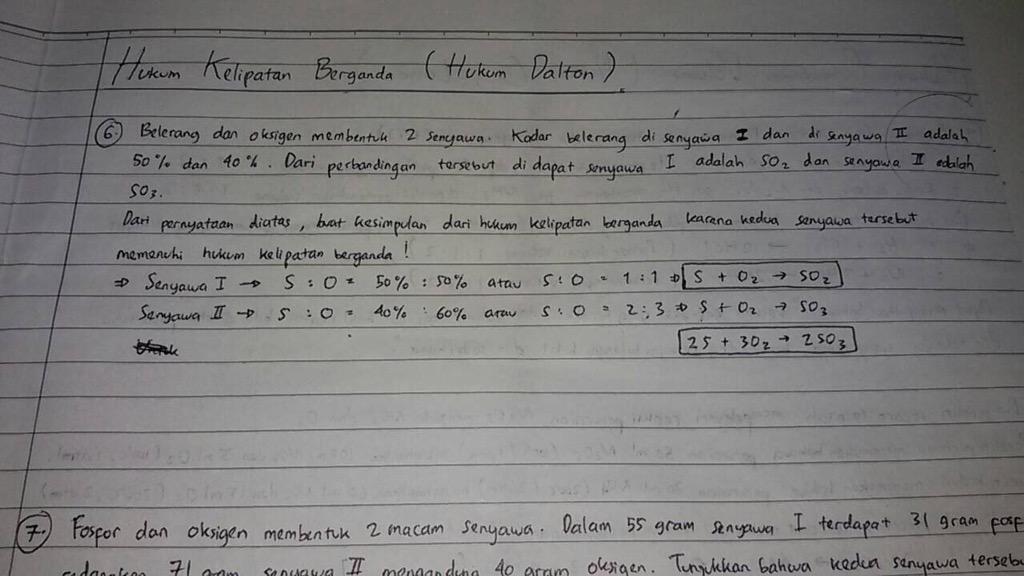 Hukum Kelipatan Berganda (Hukum Dalton)
6. Belerang dan oksigen membentuk 2 senyawa. Kadar belerang di senyawa I dan di senyawa II adalah
50% dan 40%. Dari perbandingan tersebut di dapat senyawa I adalah SO2 dan senyawa II adalah
SO3.
Dari pernyataan diatas, buat kesimpulan dari hukum kelipatan berganda karena kedua senyawa tersebut
memenuhi hukum kelipatan berganda!
⇒ Senyawa I → S : O = 50% : 50% atau S : O = 1 : 1 ⇒ S + O2 → SO2
Senyawa II → S : O = 40% : 60% atau S : O = 2 : 3 ⇒ S + O2 → SO3
2S + 3O2 → 2SO3
7. Fospor dan oksigen membentuk 2 macam senyawa. Dalam 55 gram senyawa I terdapat 31 gram fosf
71 gram senyawa II mengandung 40 gram oksigen. Tunjukkan bahwa kedua senyawa tersebu